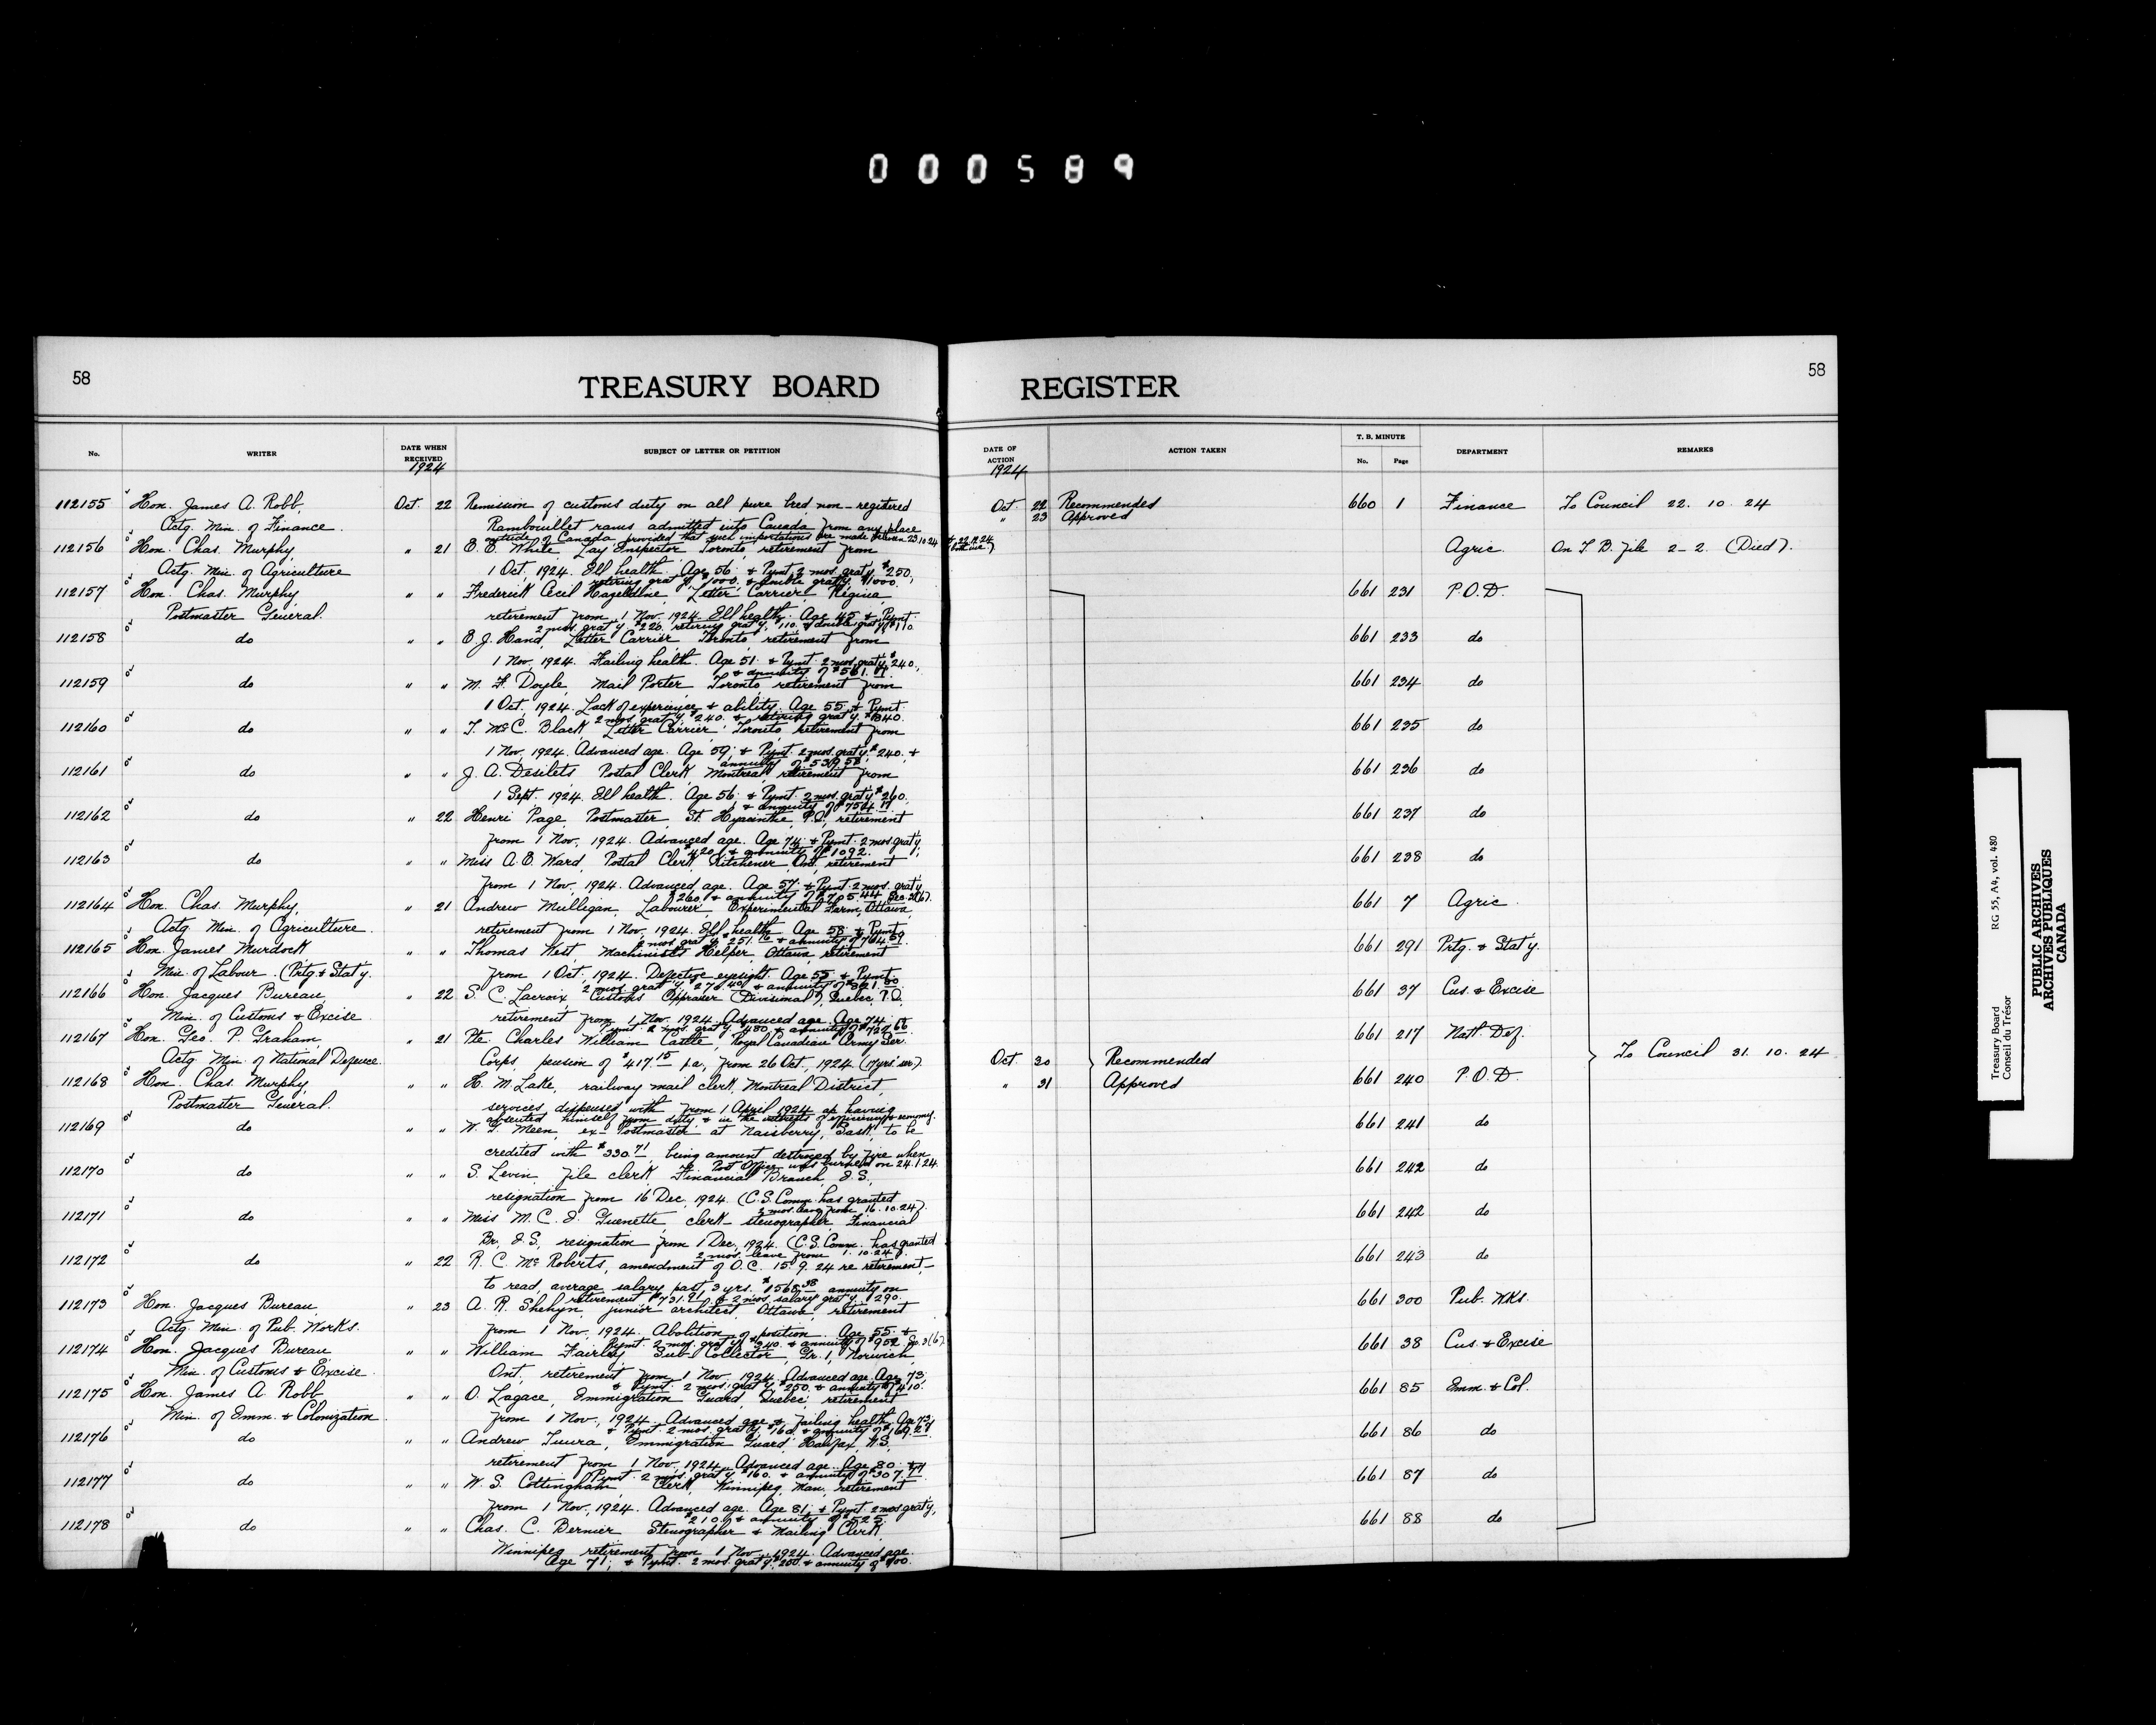 000589
58
TREASURY BOARD REGISTER
58
No.
WRITER
DATE WHEN RECEIVED
1924
SUBJECT OF LETTER OR PETITION
DATE OF ACTION
1924
ACTION TAKEN
T. B. MINUTE
No. Page
DEPARTMENT
REMARKS
112155 Hon. James A. Robb, Oct. 22 Remission of customs duty on all pure bred non-registered Oct. 22 Recommended 660 1 Finance To Council 22. 10. 24
Actg. Min. of Finance. Rambouillet rams admitted into Canada from any place " 23 Approved
outside of Canada provided that such importations are made between 23.10.24 & 22.12.24 (both inc.)
112156 Hon. Chas. Murphy, " 21 E. E. White, Lay Inspector Toronto, retirement from Agric. On T. B. file 2-2. (Died).
Actg. Min. of Agriculture 1 Oct, 1924. Ill health. Age 56. & Pymt. 3 mos. grat'y. $250,
retiring grat'y. $1000. & double grat'y. $1000.
112157 Hon. Chas. Murphy " " Frederick Cecil Hazeldine, Letter Carrier, Regina 661 231 P.O.D.
Postmaster General. retirement from 1 Nov. 1924. Ill health. Age 45 & Pymt.
2 mos. grat'y. $220. retiring grat'y. $110. & double grat'y. $110.
112158 do " " E. J. Hand, Letter Carrier Toronto retirement from 661 233 do
1 Nov, 1924. Failing health. Age 51. & Pymt. 2 mos. grat'y. $240.,
& annuity of $561.
112159 do " " M. F. Doyle, Mail Porter Toronto retirement from 661 234 do
1 Oct, 1924. Lack of experience & ability. Age 55 & Pymt.
2 mos. grat'y. $240. & retiring grat'y. $840.
112160 do " " T. McC. Black, Letter Carrier Toronto, retirement from 661 235 do
1 Nov, 1924. Advanced age. Age 59; & Pymt. 2 mos. grat'y. $240. &
annuity of $539.58.
112161 do " " J. A. Desilets Postal Clerk, Montreal retirement from 661 236 do
1 Sept. 1924. Ill health. Age 56. & Pymt. 2 mos. grat'y. $260,
& annuity of $754.
112162 do " 22 Henri Page, Postmaster, St. Hyacinthe, P.Q., retirement 661 237 do
from 1 Nov, 1924. Advanced age. Age 74; & Pymt. 2 mos. grat'y,
$420. & annuity of $1092.
112163 do " " Miss A. E. Ward, Postal Clerk, Kitchener, Ont. retirement 661 238 do
from 1 Nov, 1924. Advanced age. Age 57. & Pymt. 2 mos. grat'y
$260. & annuity of
112164 Hon. Chas. Murphy, " 21 Andrew Mulligan, Labourer, Experimental Farm, Ottawa, 661 7 Agric.
Actg. Min. of Agriculture. retirement from 1 Nov, 1924. Ill health Age 58 & Pymt
2 mos. grat'y. $251. & annuity of $764.59.
112165 Hon. James Murdock " " Thomas West, Machinist's Helper, Ottawa, retirement 661 291 Prtg. & Stat'y.
Min. of Labour. (Prtg & Stat'y. from 1 Oct, 1924. Defective eyesight. Age 55 & Pymt.
2 mos. grat'y. & annuity of
112166 Hon. Jacques Bureau, " 22 S. C. Lacroix, Customs Appraiser (Divisional), Quebec, P.Q. 661 37 Cus. & Excise
Min. of Customs & Excise retirement from 1 Nov. 1924. Advanced age. Age 74.
Pymt. 2 mos. grat'y. $480. & annuity of
112167 Hon. Geo. P. Graham, " 21 Pte. Charles William Castle, Royal Canadian Army Ser. 661 217 Nat'l. Def.
Actg. Min. of National Defence. Corps, pension of $417.15 p.a., from 26 Oct, 1924. Oct. 30 Recommended To Council 31. 10. 24
112168 Hon. Chas. Murphy, " " H. M. Lake, railway mail clerk, Montreal District, " 31 Approved 661 240 P.O.D.
Postmaster General. services dispensed with from 1 April 1924 as having
absented himself from duty & in the interests of efficiency & economy.
112169 do " " W. T. Meen, ex-Postmaster at Naisberry, Sask, to be 661 241 do
credited with $330.71 being amount destroyed by fire when
the Post Office was burned on 24.1.24.
112170 do " " S. Levin, file clerk, Financial Branch, I.S., 661 242 do
resignation from 16 Dec. 1924. (C.S. Comm. has granted
2 mos. leave from 16.10.24).
112171 do " " Miss M. C. I. Guenette, clerk-stenographer, Financial 661 242 do
Br., I.S., resignation from 1 Dec, 1924. (C.S. Comm. has granted
2 mos. leave from 1.10.24).
112172 do " 22 R. C. McRoberts, amendment of O.C. 15.9.24 re retirement- 661 243 do
to read average salary past 3 yrs. $1568.38 annuity on
retirement & 2 mos. salary grat'y. $290.
112173 Hon. Jacques Bureau, " 23 A. R. Shehyn, junior architect, Ottawa, retirement 661 300 Pub. Wks.
Actg. Min. of Pub. Works. from 1 Nov, 1924. Abolition of position. Age 55. &
Pymt. 2 mos. grat'y. $340. & annuity of $952
112174 Hon. Jacques Bureau " " William Fairley Sub-Collector, Gr. 1, Norwich, 661 38 Cus. & Excise
Min. of Customs & Excise. Ont, retirement from 1 Nov 1924. Advanced age. Age 73;
& Pymt. 2 mos. grat'y. $250. & annuity of $410.
112175 Hon. James A. Robb, " " O. Lagace, Immigration Guard, Quebec, retirement 661 85 Imm. & Col.
Min. of Imm. & Colonization. from 1 Nov, 1924. Advanced age & failing health. Age 73,
& Pymt. 2 mos. grat'y. $160. & annuity of
112176 do " " Andrew Tuura, Immigration Guard, Halifax, N.S., 661 86 do
retirement from 1 Nov, 1924. Advanced age. Age 80. &
Pymt. 2 mos. grat'y. $160. & annuity of
112177 do " " W. S. Cottingham, Clerk, Winnipeg, Man., retirement 661 87 do
from 1 Nov, 1924. Advanced age. Age 81; & Pymt. 2 mos grat'y,
$210. & annuity of $525.
112178 do " " Chas. C. Bernier Stenographer & Mailing Clerk 661 88 do
Winnipeg retirement from 1 Nov. 1924. Advanced age.
Age 71; & Pymt. 2 mos. grat'y. $200. & annuity of
Treasury Board
Conseil du Trésor
RG 55, A4, vol. 480
PUBLIC ARCHIVES
ARCHIVES PUBLIQUES
CANADA